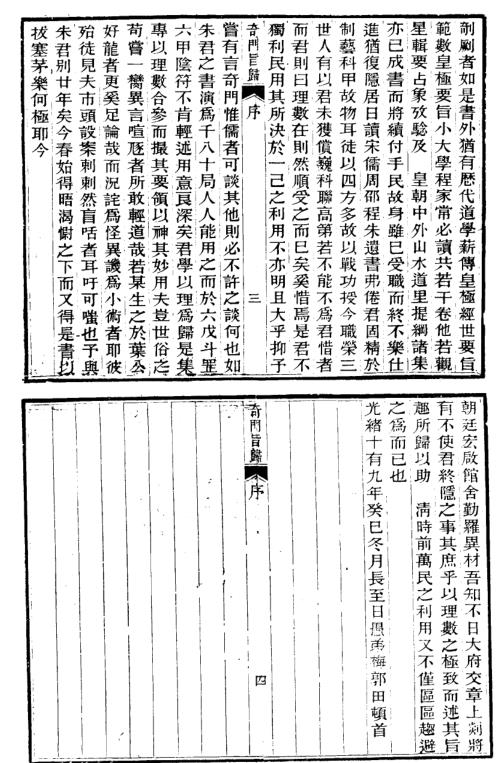 剞劂者如是書外猶有歷代道學薪傳皇極經世要旨
範數皇極要旨小大學程家常必讀共若干卷他若觀
星輯要占象攷驗及　皇朝中外山水道里提綱諸集
亦已成書而將續付手民故身雖已受職而終不樂仕
進猶復隱居日讀宋儒周邵程朱遺書弗倦君固精於
制藝科甲故物耳徒以四方多故以戰功授今職榮三
世人有以君未獲償巍科聯高第若不能不爲君惜者
而君則曰理數在則然順受之而已矣奚惜焉是君不
獨利民用其所決於一己之利用不亦明且大乎抑予
奇門旨歸　序　三
嘗有言奇門惟儒者可談其他則必不許之談何也如
朱君之書演爲千八十局人人能用之而於六戊斗罡
六甲陰符不肯輕述用意良深矣君學以理爲歸是集
專以理數合參而撮其要領以神其妙用夫豈世俗之
苟嘗一臠異言喧豗者所敢輕道哉若某生之於葉公
好龍者更奚足論哉而況詫爲怪異譏爲小術者耶彼
殆徒見夫市頭設案剌剌然盲咶者耳吁可嗤也予與
朱君別廿年矣今春始得晤渴慰之下而又得是書以
拔塞茅樂何極耶今
朝廷宏啟館舍勤羅異材吾知不日大府交章上剡將
有不使君終隱之事其庶乎以理數之極致而述其旨
趣所歸以助　清時前萬民之利用又不僅區區趨避
之爲而已也
光緒十有九年癸巳冬月長至日愚弟梅郭田頓首
奇門旨歸　序　四